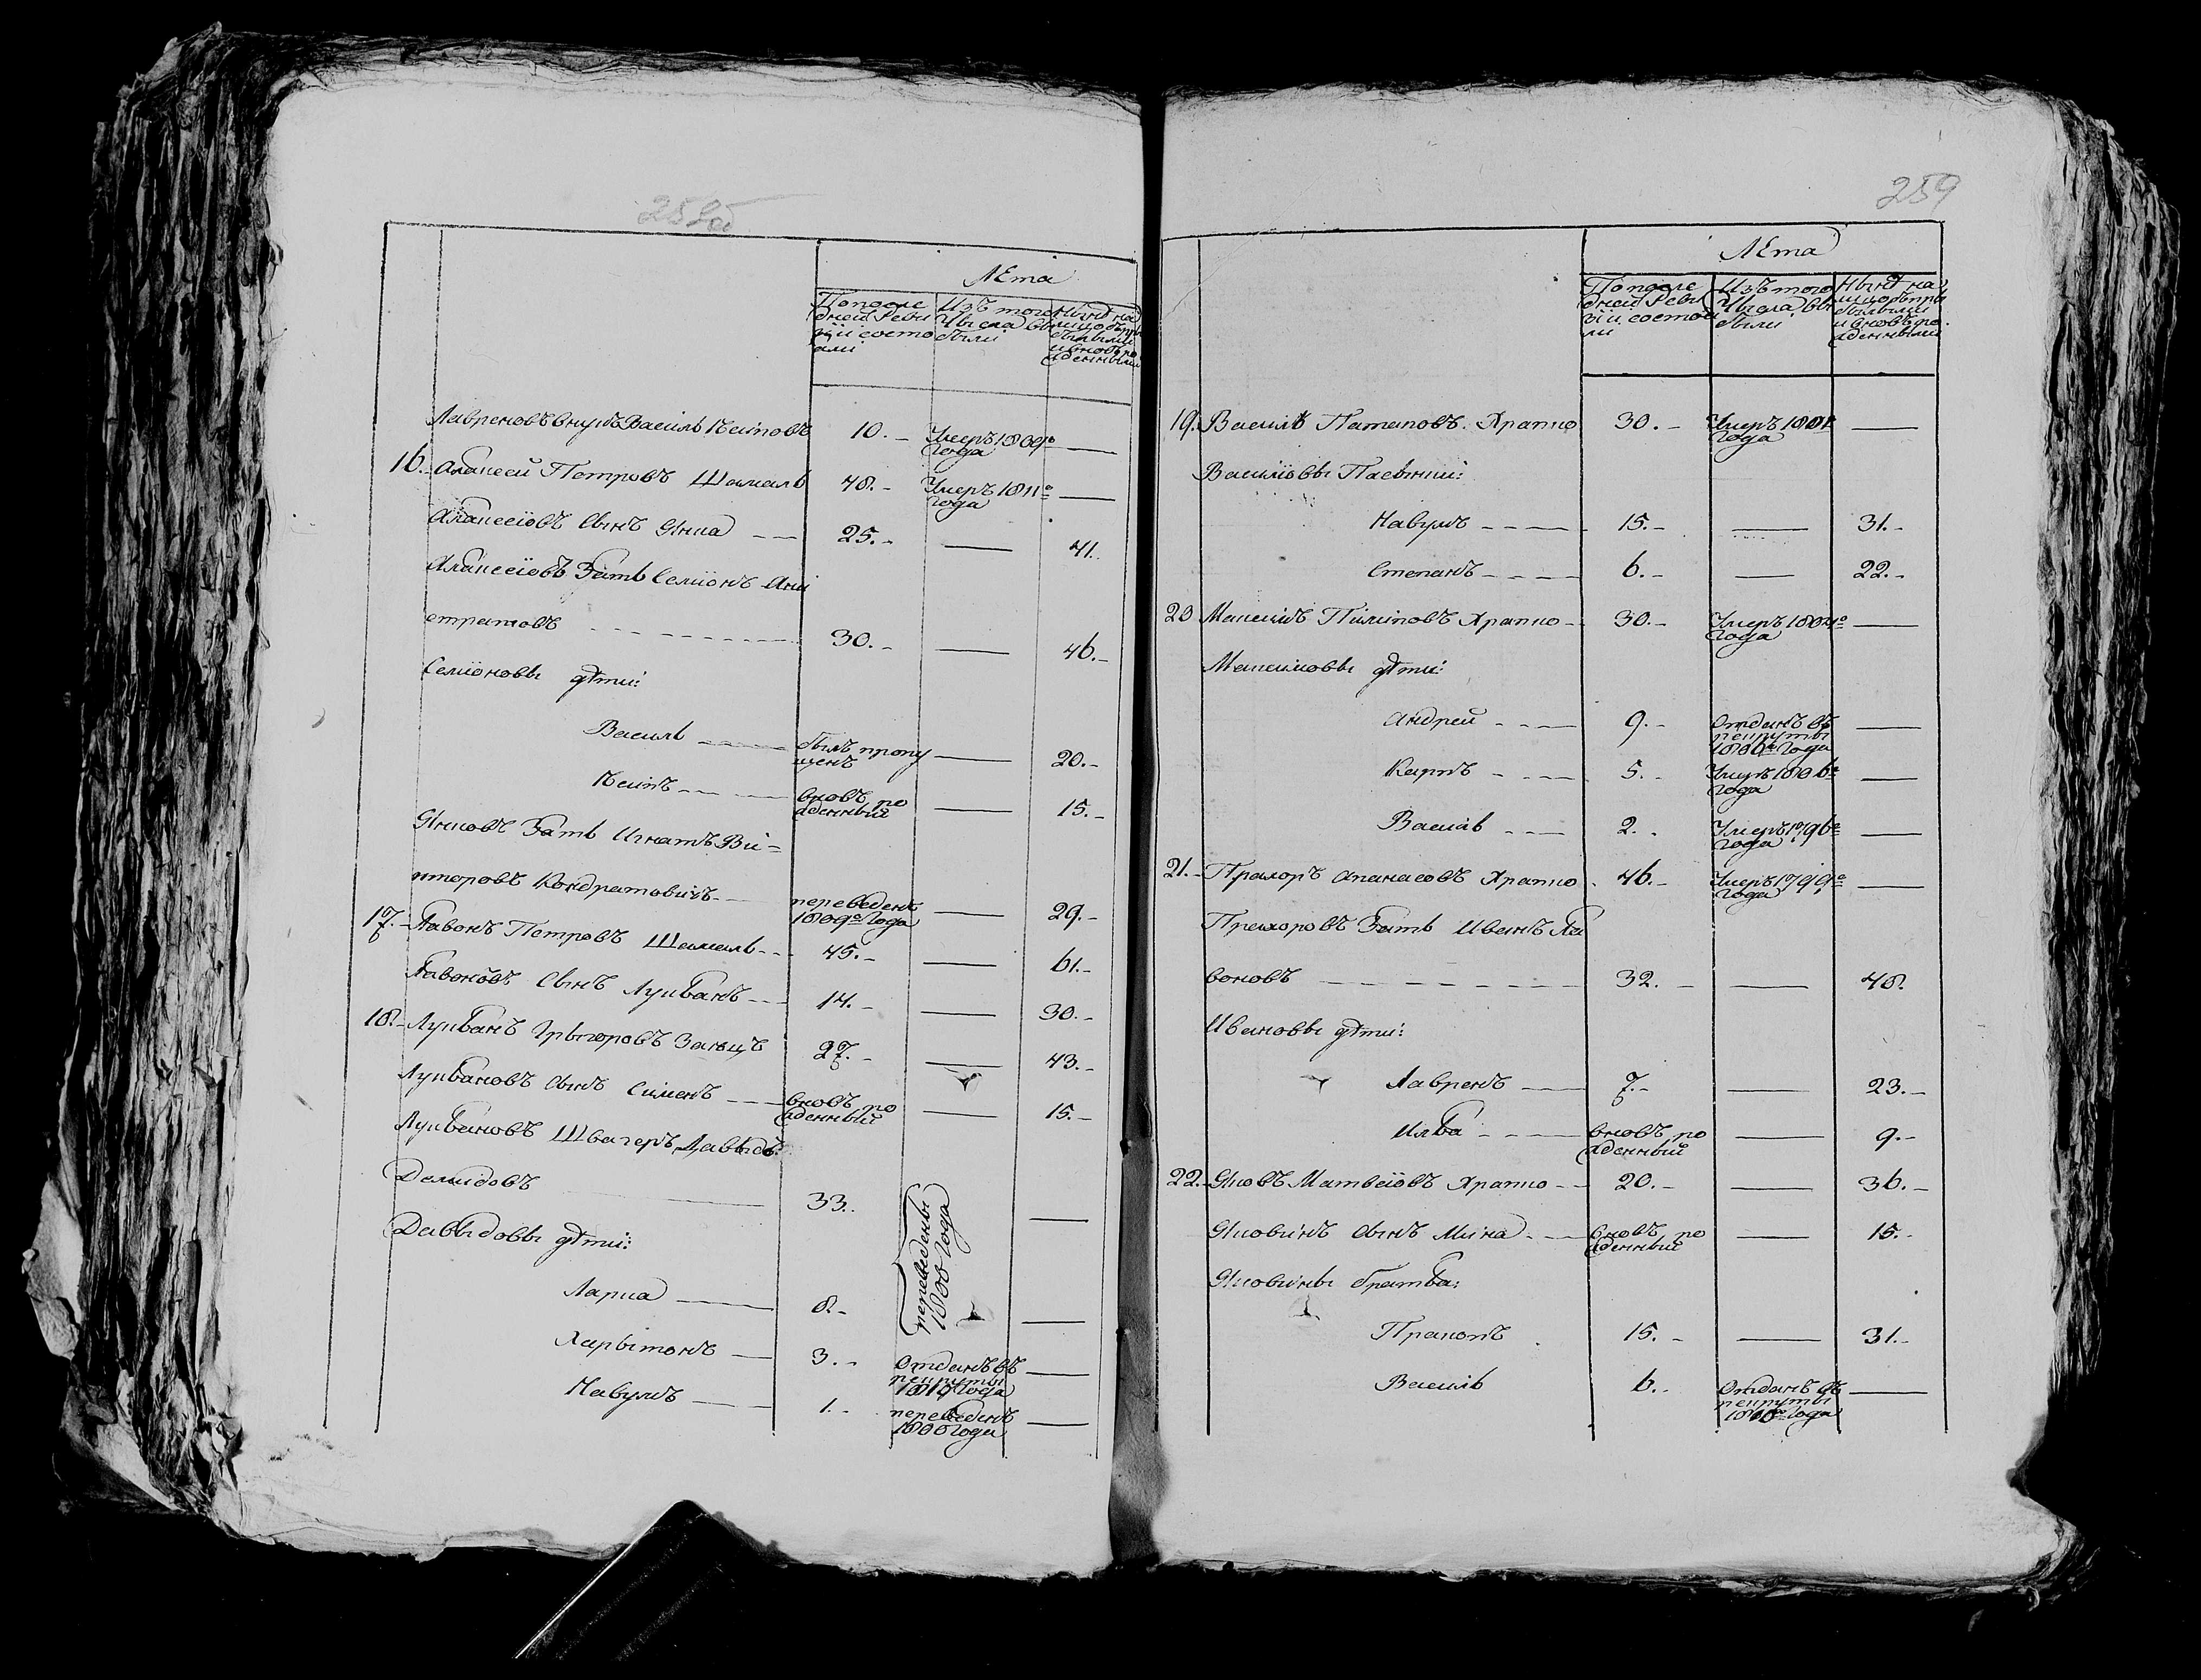 258об
Лѣта
Попосле
дней Реви
зіи состо
яли
Изъ того
Числа вы
были
Нынѣ на
лицо съпри
былыми
ивновь ро
жденными
Лавреновъ внукъ Василь Есиповъ 10. — Умеръ 1809го
года
16. Алексей Петровъ Шамаль 48. — Умеръ 1811го
года
Алексеіовъ сынъ Янка 25. — 41.
Алексеіовъ Зять Семіонъ Ани
стратовъ 30. — 46.
Семіоновы дѣти:
Василь былъ пропу
щенъ — 20.
Есипъ вновь ро
жденный — 15.
Янковъ Зять Игнатъ Ви-
кторовъ Кондратовичъ переведенъ
1809го года — 29.
17. Лавонъ Петровъ Шамаль 45. — 61.
Лавоновъ сынъ Лукьянъ 14. — 30.
18. Лукьянъ Грыгоровъ Заяцъ 27. — 43.
Лукьяновъ сынъ Сименъ вновь ро
жденный — 15.
Лукьяновъ Швагеръ Давыдъ
Демидовъ 33. переведены
1800 года —
Давыдовы дѣти:
Ларка 8. —
Харытонъ 3. Отданъ въ
рекруты
1810 года —
Навумъ 1. переведенъ
1800 года —
259
Лѣта
Попосле
дней Реви
зіи состоя
ли
Изъ того
Числа вы
были
Нынѣ на
лицо съпри
былыми
ивновь ро
жденными
19. Василь Патаповъ Храпко 30. Умеръ 1801го
года —
Васильовы Пасынки:
Навумъ 15. — 31.
Степанъ 6. — 22.
20 Максимъ Пилиповъ Храпко 30. Умеръ 1804го
года —
Максимовы дѣти:
Андрей 9. Отданъ въ
рекруты
года —
Карпъ 5. Умеръ 1806го
года —
Василь 2. Умеръ 1796го
года —
21. Прахоръ Апанасовъ Храпко 46. Умеръ 1799го
года —
Прахоровъ Зять Иванъ Ла
воновъ 32. — 48.
Ивановы дѣти:
Лавренъ 7. — 23.
Илья вновь ро
жденный — 9.
22. Яковъ Матвеіовъ Храпко 20. — 36.
Яковинъ сынъ Мина вновь ро
жденный — 15.
Яковины братья:
Пракопъ 15. — 31.
Василь 6. Отданъ въ
рекруты
года —